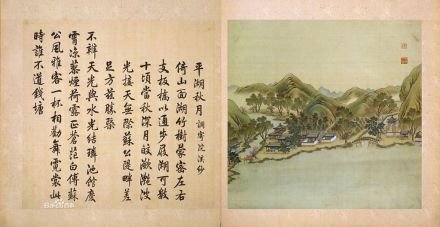 平湖秋月 調寄浣溪紗
倚山面湖竹樹蒙密左右
支板橋以通步屧湖可數
十頃當秋深月皎瀲灧波
光接天無際蘇公隄畔差
足方茲勝槩
不辨天光與水光結璘池館慶
霄涼蓼煙荷露正蒼茫白傅蘇
公風雅客一杯相勸舞霓裳此
時誰不道錢塘